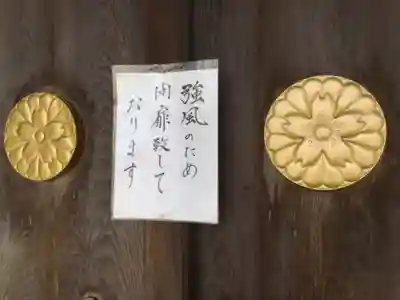 強風のため
閉扉致して
おります